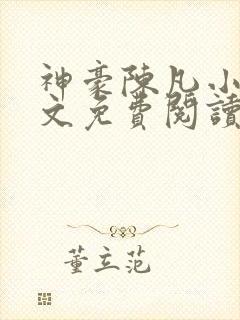 神豪陳凡小
文免費閱讀
董立范